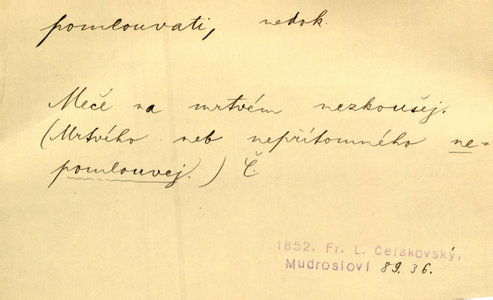 pomlouvati, nedok.
Meče na mrtvém nezkoušej.
(Mrtvého neb nepřítomného ne-
pomlouvej.) Č.
1852. Fr. L. Čelakovský,
Mudrosloví 89.36.